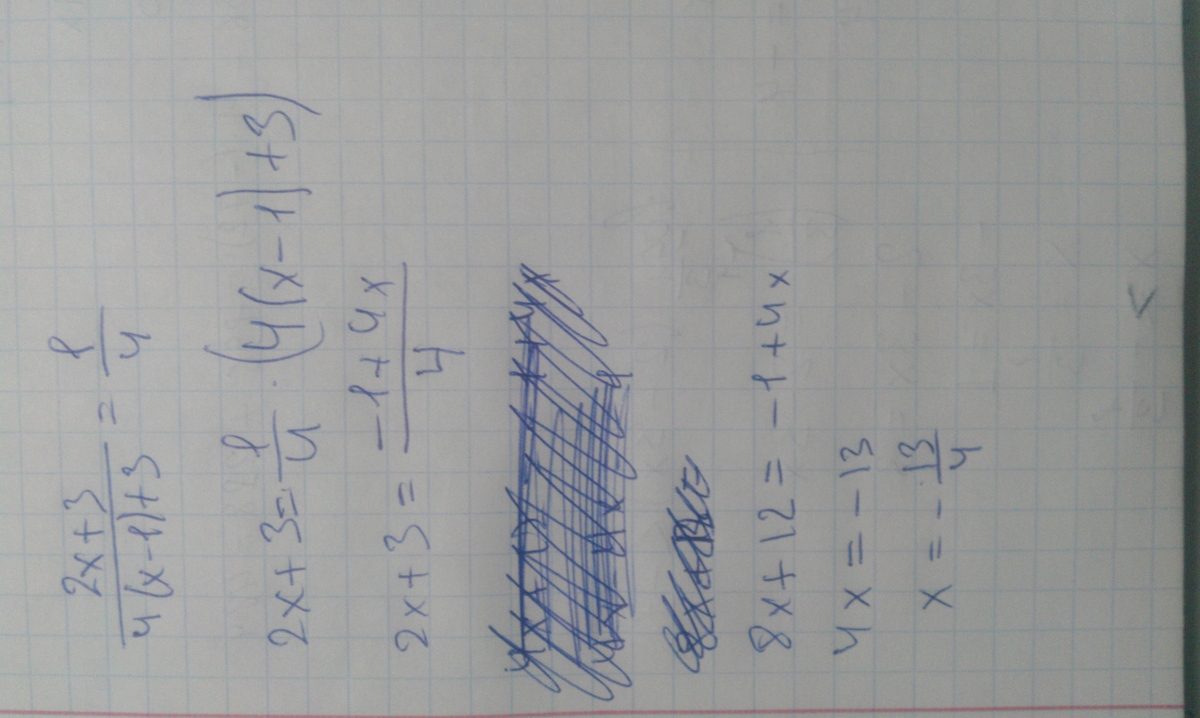 (2x+3)/(4(x-1)+3) = 1/4
2x+3 = 1/4 · (4(x-1)+3)
2x+3 = (-1+4x)/4
8x+12 = -1+4x
4x = -13
x = -13/4